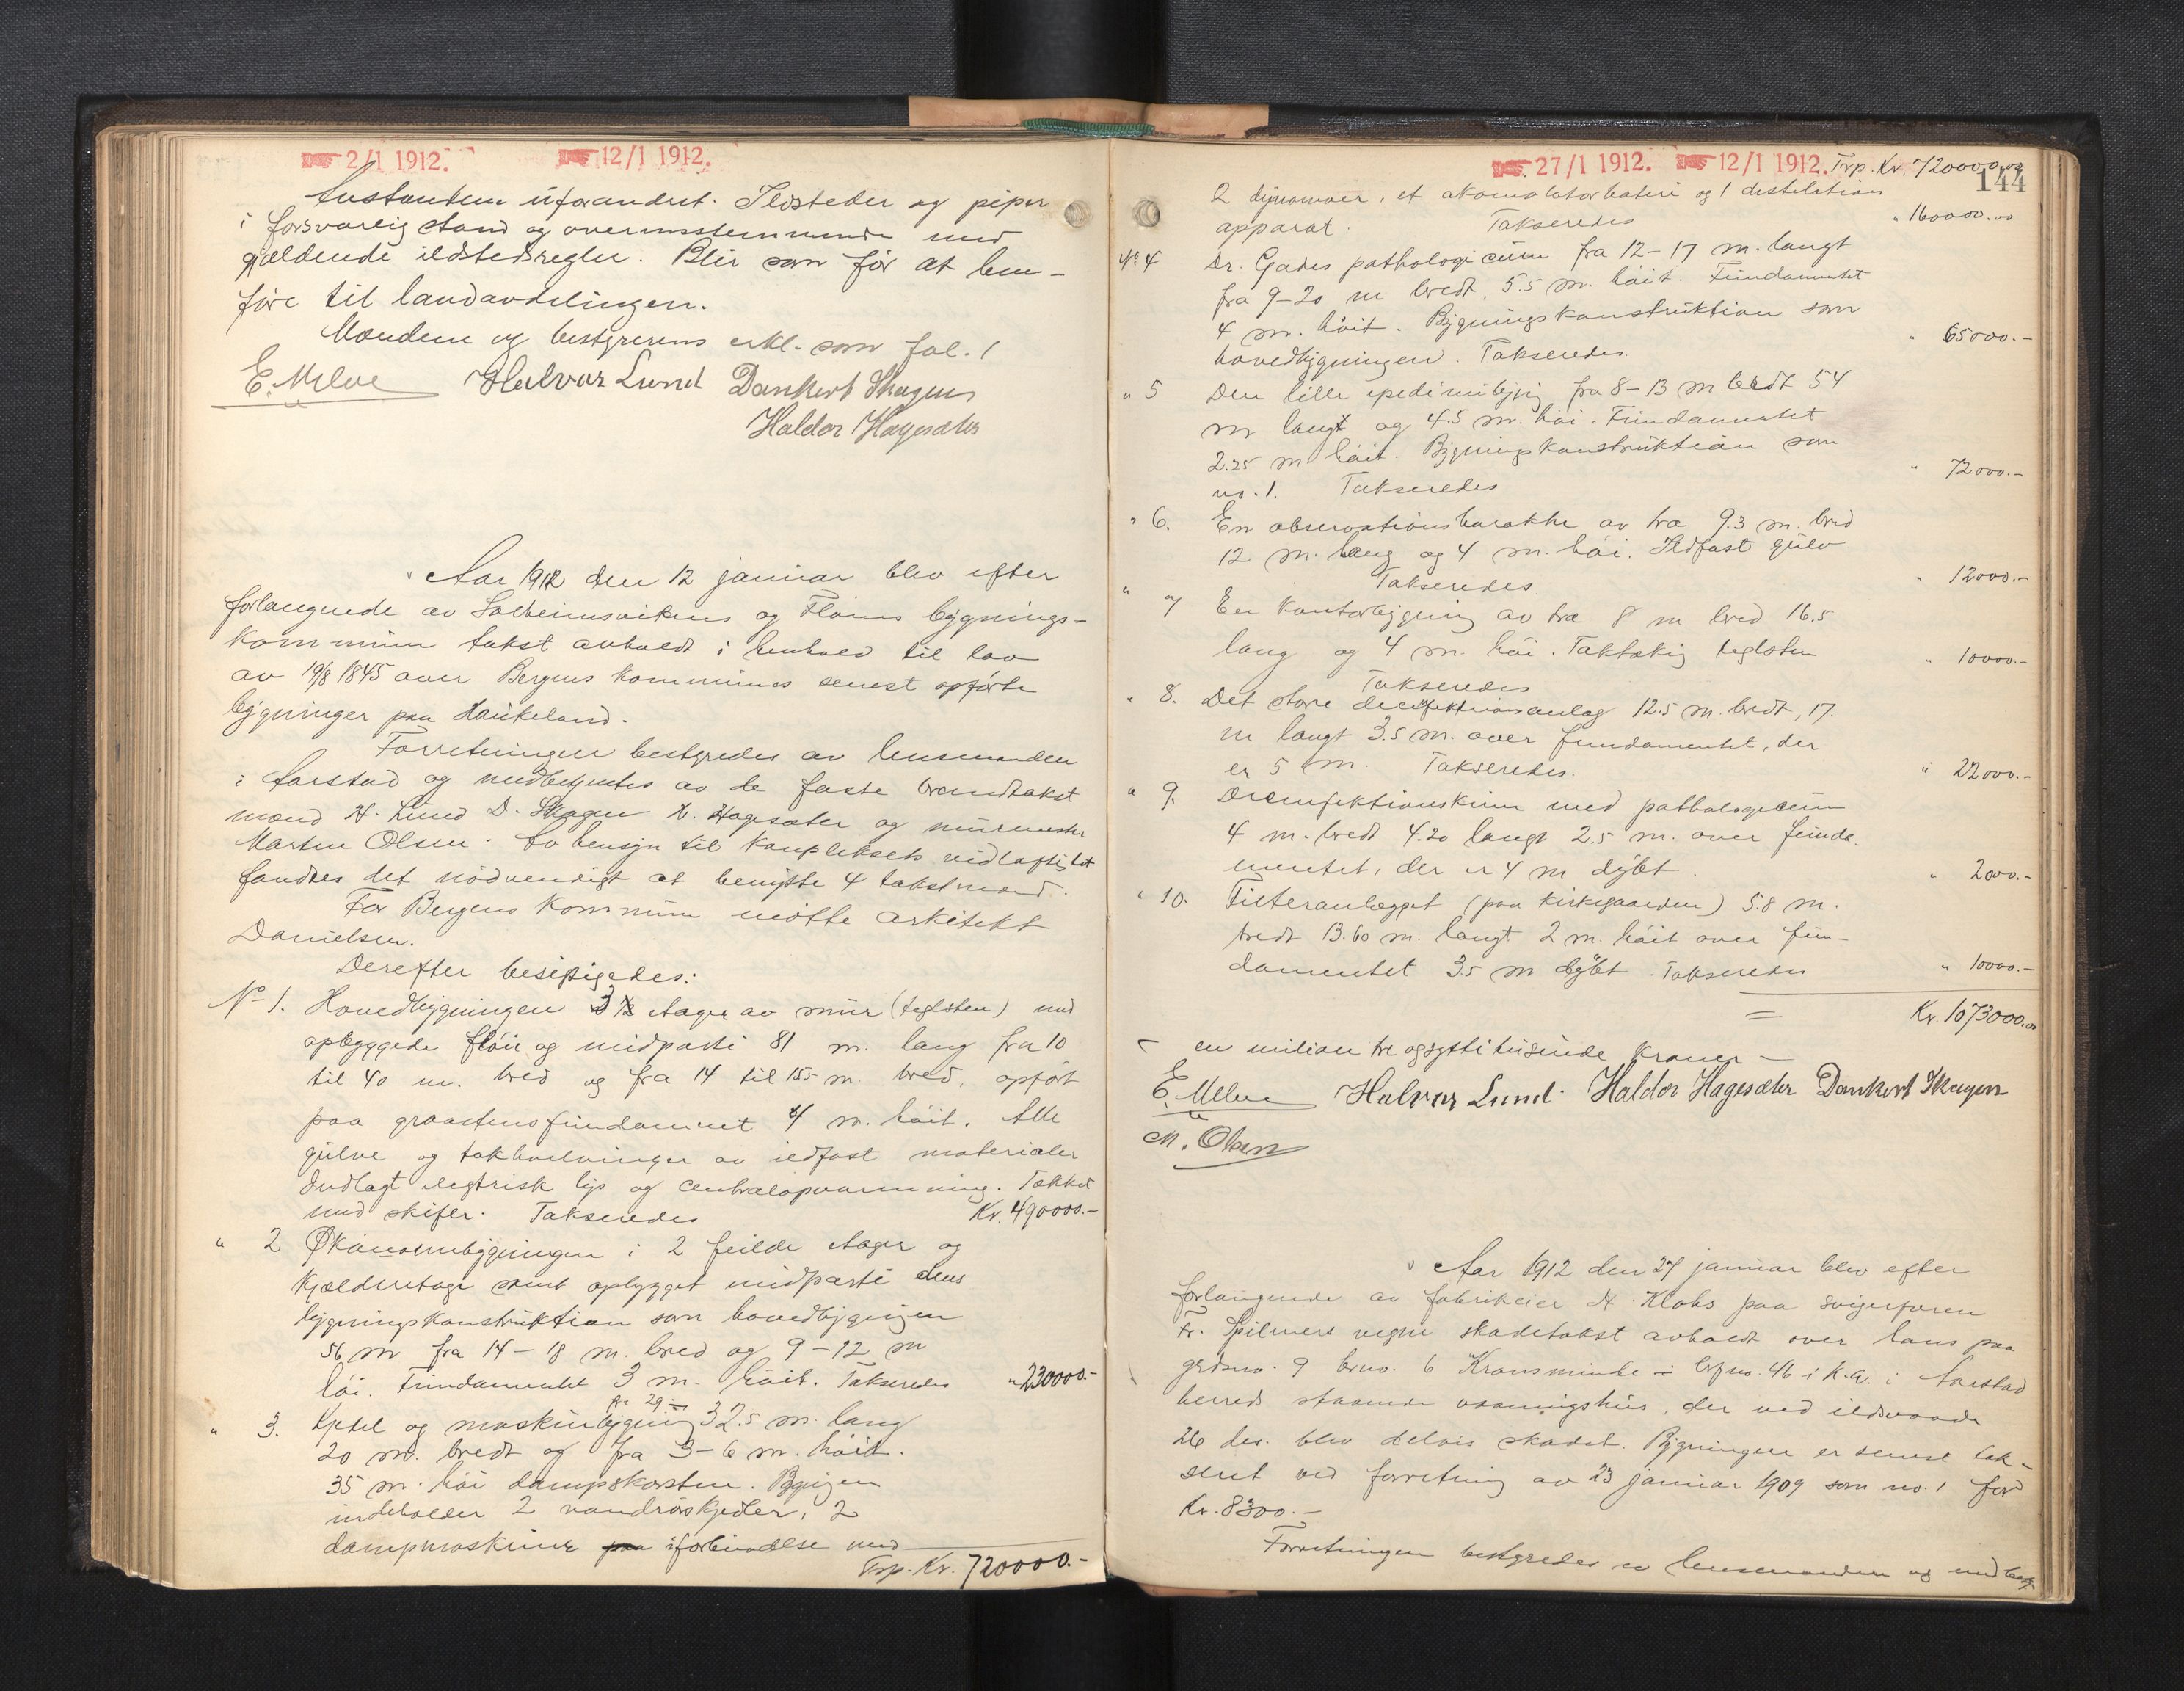 2/1 1912. 12/1 1912.
Instanten uforandret. Ildsteder og piper
i forsvarlig stand og overensstemmende med
gjældende ildstedsregler. Blir som før at hen-
føre til landavdelingen.
Mændene og bestyrerens erkl. som fol. 1
E. Melve Halvar Lund Dankert Skagen
Haldor Hagesæter
Aar 1912 den 12 januar blev efter
forlangende av Solheimsvikens og Fløens bygnings-
kommune takst avholdt i henhold til lov
av 19/8 1845 over Bergens kommunes senest opførte
bygninger paa Haukeland.
Forretningen bestyredes av lensmanden
i Aarstad og medbetjentes av de faste brandtakst
mænd H. Lund D. Skagen H. Hagesæter og murmester
Martin Olsen. Av hensyn til kompleksets vidløftighet
fandtes det nødvendigt at benytte 4 takstmænd.
For Bergens kommune møtte arkitekt
Danielsen.
Derefter besigtigedes:
No 1. Hovedbygningen 3 ½ etager av mur (teglsten) med
opbyggede fløie og midparti 81 m. lang fra 10
til 40 m. bred og fra 14 til 15.5 m. bred, opført
paa graastensfundament 4 m. høit. Alle
gulve og takhvelvinger av ildfast materialer
Indlagt elegtrisk lys og centralopvarmning. Tækket
med skifer. Takseredes Kr. 490000.-
" 2 Økonomibygningen i 2 fulde etager og
kjælderetage samt opbygget midparti dens
bygningskonstruktion som hovedbygningen
56 m fra 14-18 m. bred og 9-12 m
høi. Fundamentet 3 m. høit. Takseredes " 230000.-
" 3. Kjedel og maskinbygning 32.5 m. lang
20 m. bredt og fra 3-6 m. høit.
35 m. høi dampskorsten. Bygningen
indeholder 2 vandrørskjedler, 2
dampmaskiner i forbindelse med
Trp. Kr. 720000.-
27/1 1912. 12/1 1912. Trp. Kr. 720000.00
144
2 dynamoer, et akomulatorbateri og 1 destilations
apparat. Takseredes " 160000.00
No 4 Dr. Gades pathologicum fra 12-17 m. langt
fra 9-20 m bredt, 5.5 m. høit. Fundamentet
4 m. høit. Bygningskonstruktion som
hovedbygningen. Takseredes. " 65000.-
" 5 Den lille epedimibygng fra 8-13 m. bredt 54
m langt og 4.5 m. høi. Fundamentet
2.25 m høit. Bygningskonstruktion som
no. 1. Takseredes " 72000.-
" 6. En observationsbarakke av træ 9.3 m. bred
12 m. lang og 4 m. høi. Ildfast gulv
Takseredes " 12000.-
" 7 En kontorbygning av træ 8 m bred 16.5
lang og 4 m. høi. Taktækning teglsten
Takseredes " 10000.-
" 8. Det store desinfektionsanlæg 12.5 m. bredt, 17.
m langt 3.5 m. over fundamentet, der
er 5 m. Takseredes. " 22000.-
" 9. Desinfektionskum med pathologicum
4 m. bredt 4.20 langt 2.5 m. over funda-
mentet, der er 4 m dybt. " 2000.-
" 10. Filteranlægget (paa kirkegaarden) 5.8 m.
bredt 13.60 m. langt 2 m. høit over fun-
damentet 3.5 m dybt. Takseredes " 10000.-
Kr. 1073000.00
en milion tre og sytti tusinde kroner —
E. Melve Halvar Lund. Haldor Hagesæter Dankert Skagen
M. Olsen
Aar 1912 den 27 januar blev efter
forlangende av fabrikeier H. Klohs paa svigerfaren
Fr. Spilmers vegne skadetakst avholdt over hans paa
grdsno. 9 brno. 6 Kronsminde i brfno. 46 i k.a. i Aarstad
herred staaende vaaningshus, der ved ildsvaade
26 des. blev delvis skadet. Bygningen er senest tak-
seret ved forretning av 23 januar 1909 som no. 1 for
Kr. 8300.-
Forretningen bestyredes av lensmanden og medbetj.